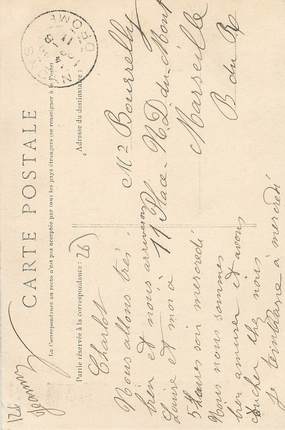 CARTE POSTALE
La Correspondance au recto n'est pas acceptée par tous les pays étrangers (se renseigner à la Poste)
Partie réservée à la correspondance
Adresse du destinataire
Charlot
Nous allons très
bien et nous arriverons
Laure et moi à
5 heures soir mercredi
Nous nous sommes
bien amuser et avons
coucher chez nous
Je
à mercredi
Jeanne
Mr Bourrelly
11 Place N.D du Mont
Marseille
B du R